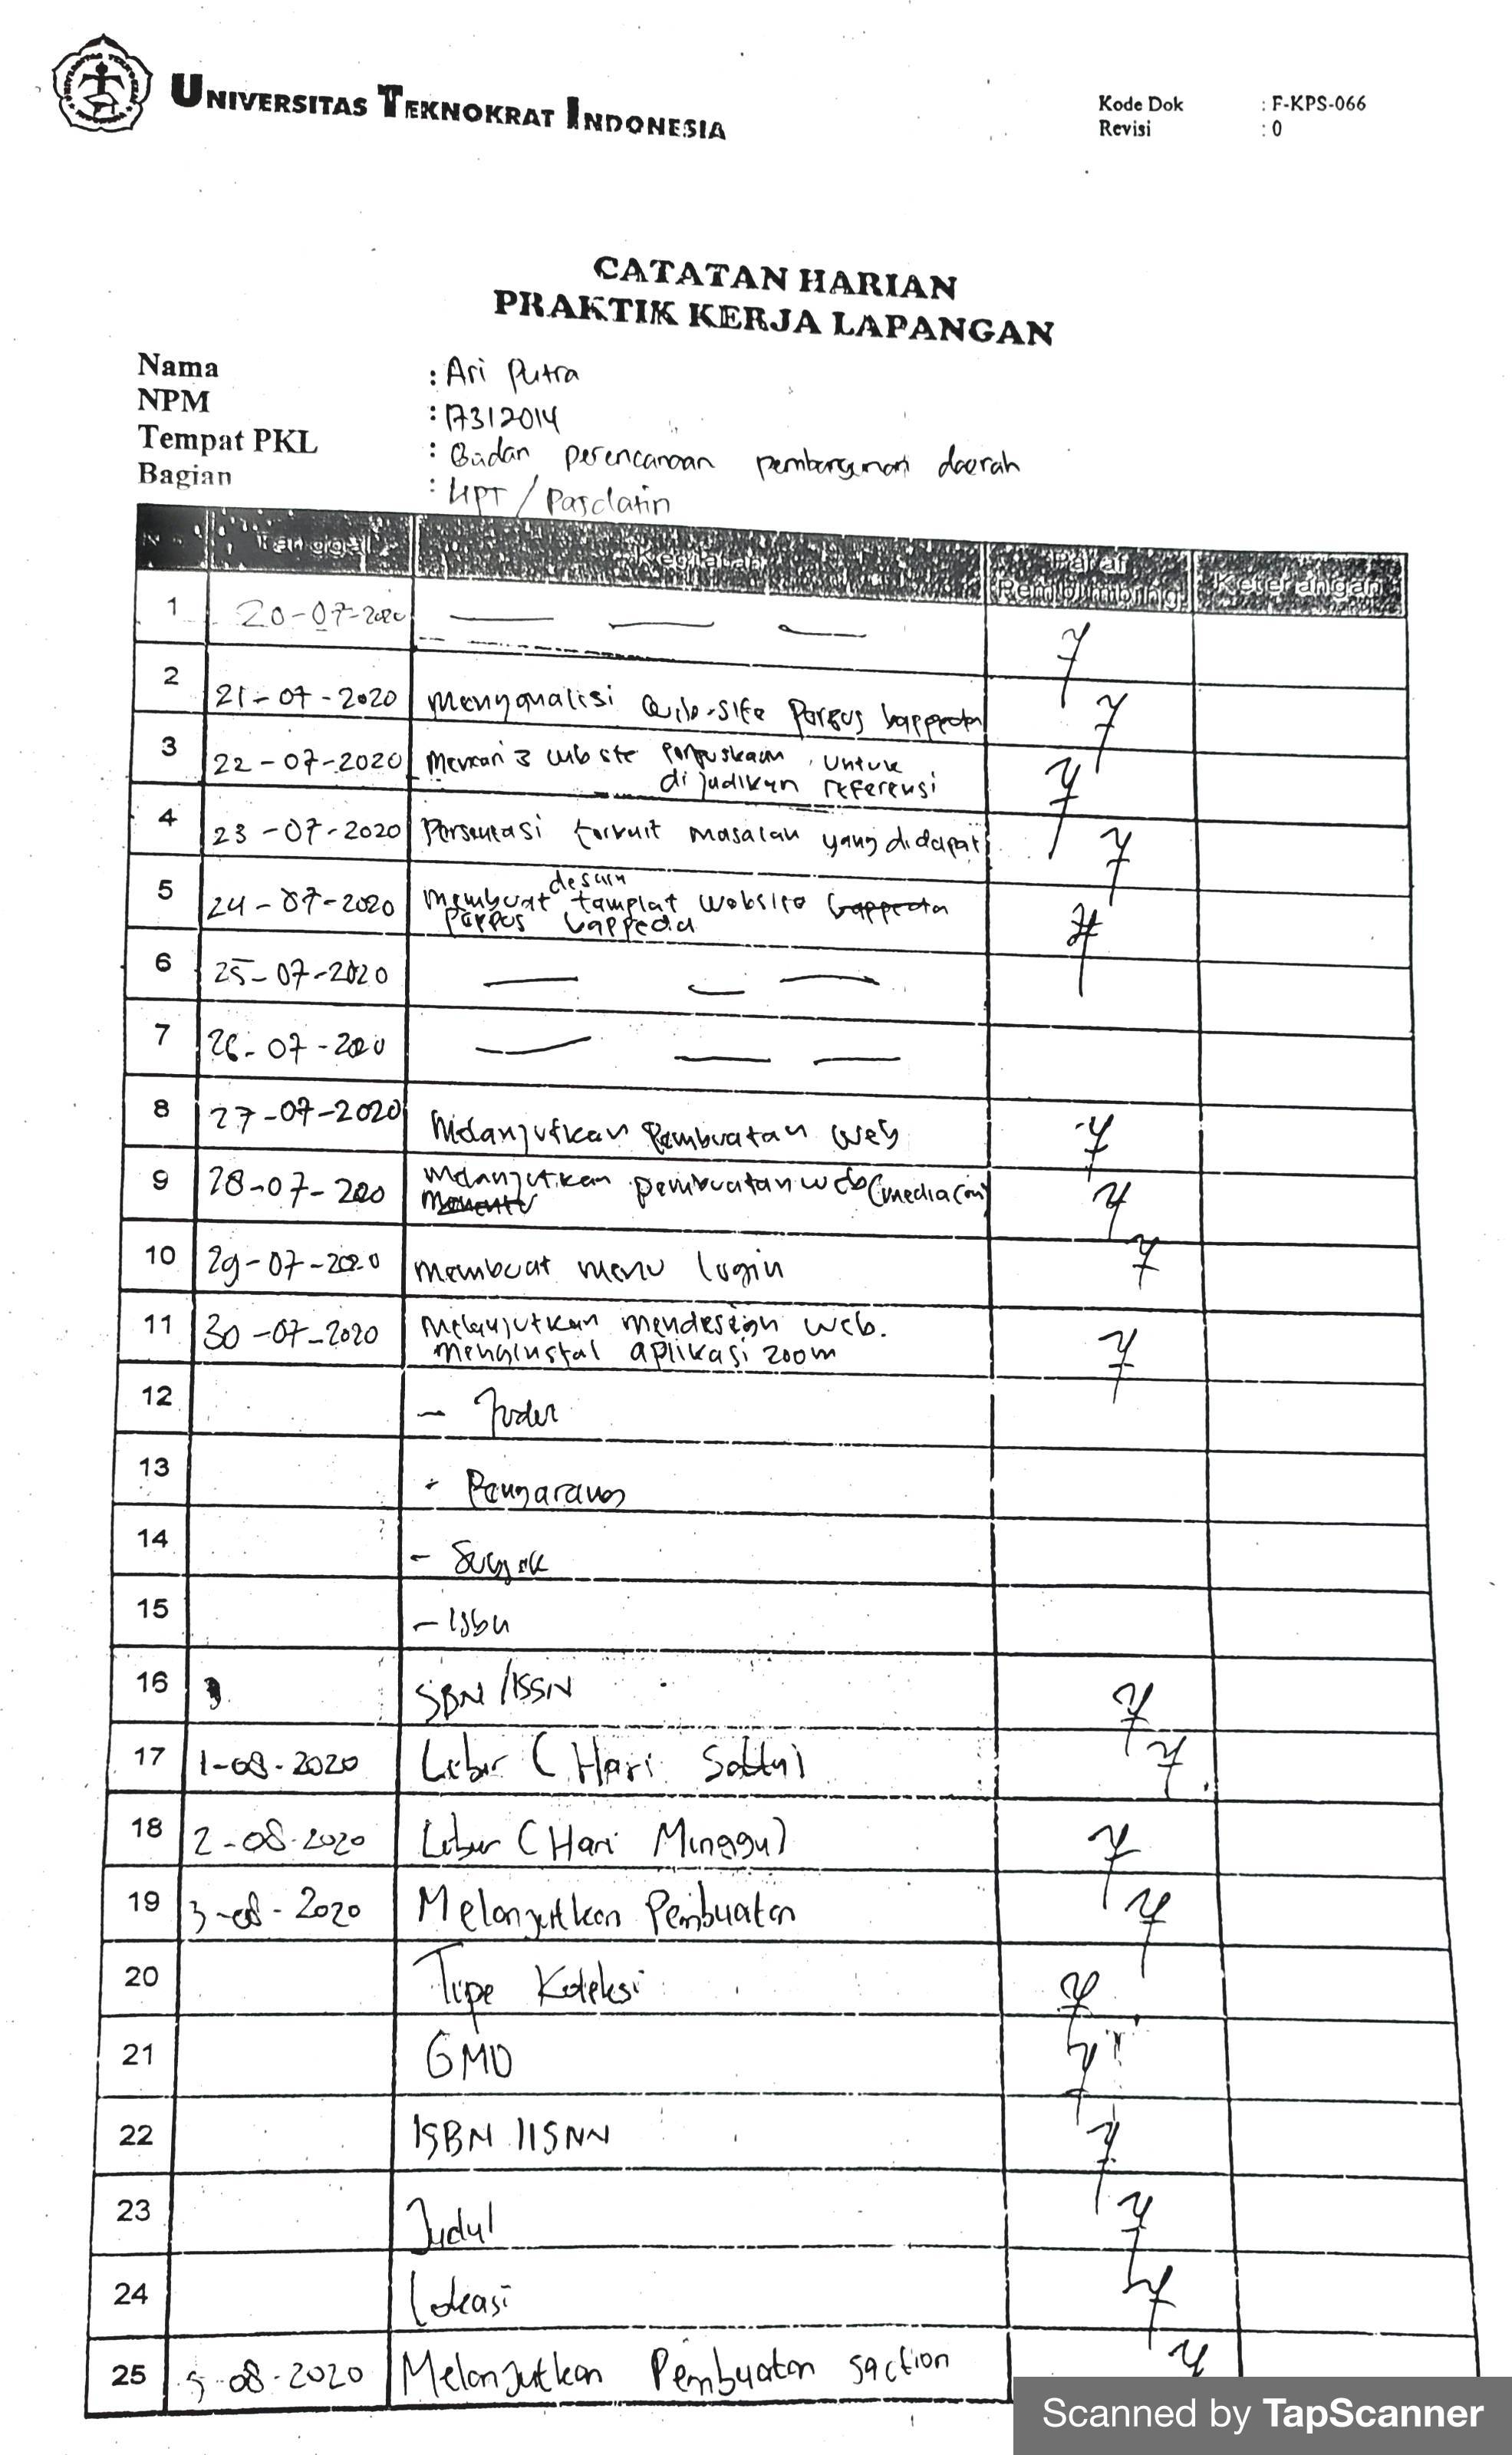 UNIVERSITAS TEKNOKRAT INDONESIA
Kode Dok : F-KPS-066
Revisi : 0
CATATAN HARIAN
PRAKTIK KERJA LAPANGAN
Nama : Ari Putra
NPM : 17312014
Tempat PKL : Badan perencanaan pembangunan daerah
Bagian : UPT / Pasdatin
Tanggal Kegiatan Paraf Pembimbing Keterangan
1 20-07-2020
2 21-07-2020 Menganalisi Web-site Perpus bappeda
3 22-07-2020 Mencari 3 web ste perpuskaan, untuk
dijadikan referensi
4 23-07-2020 Persentasi terkait masalah yang didapat
5 24-07-2020 Membuat desain tamplat website bappeda
perpus bappeda
6 25-07-2020
7 26-07-2020
8 27-07-2020 Melanjutkan Pembuatan Web
9 28-07-2020 Melanjutkan pembuatan web
10 29-07-2020 membuat menu login
11 30-07-2020 Melanjutkan mendesign web.
menginstal aplikasi zoom
12 -
13 - Pengarang
14 - Subjek
15 - Isbn
16 SBN/ISSN
17 1-08-2020 Libur (Hari Sabtu)
18 2-08-2020 Libur (Hari Minggu)
19 3-08-2020 Melanjutkan Pembuatan
20 Tipe Koleksi
21 GMD
22 ISBN IISNN
23 Judul
24 Lokasi
25 5-08-2020 Melanjutkan Pembuatan Section
Scanned by TapScanner